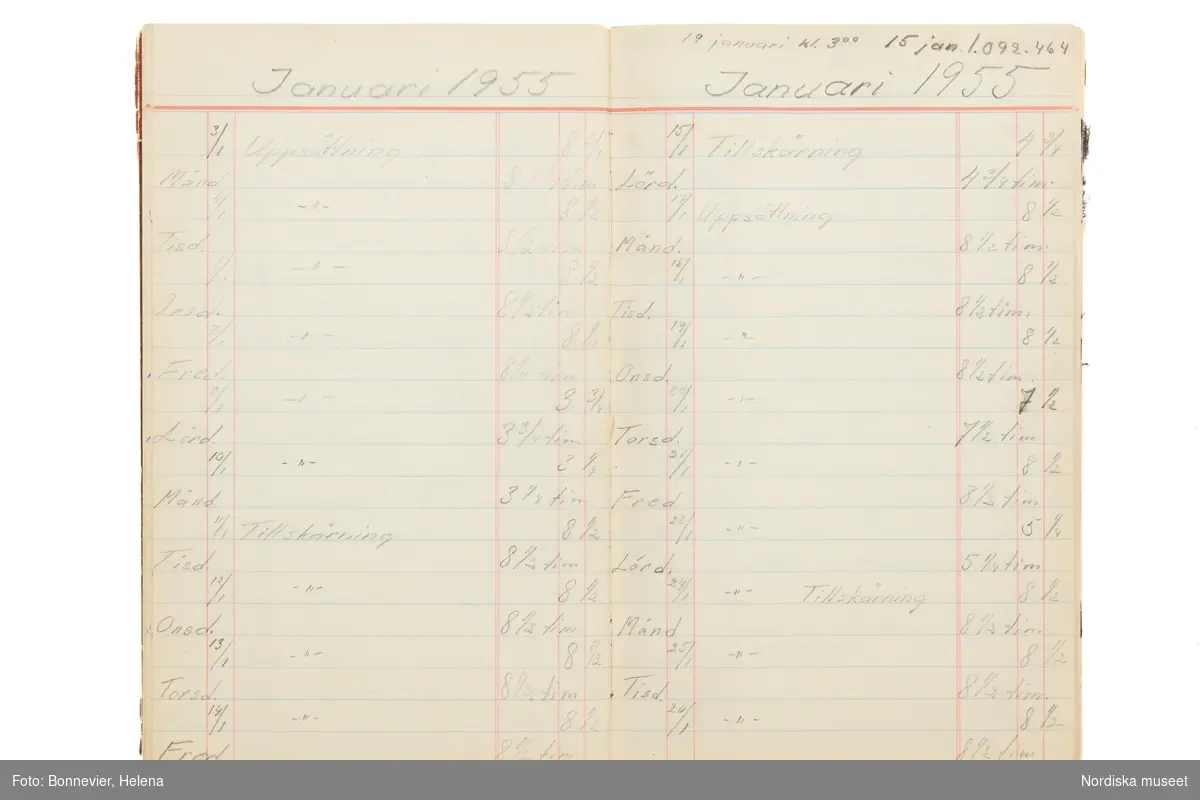 Januari 1955
3/1 Uppsättning 8
Månd. 8
4/1 -"- 8 1/2
Tisd.
-"- 8 1/2
Onsd. 8 1/2 tim
7/1 -"- 8 1/2
Fred. 8 1/2 tim
8/1 -"- 3 3/4
Lörd. 3 3/4 tim
10/1 -"- 3 1/4
Månd. 3 1/4 tim
11/1 Tillskärning 8 1/2
Tisd. 8 1/2 tim
12/1 -"- 8 1/2
Onsd. 8 1/2 tim
13/1 -"- 8 1/2
Torsd. 8 1/2 tim
14/1 -"- 8 1/2
Fred 8 1/2 tim
19 januari kl. 3⁰⁰ 15 jan 1.092.464
Januari 1955
15/1 Tillskärning 4 3/4
Lörd. 4 3/4 tim.
17/1 Uppsättning 8 1/2
Månd. 8 1/2 tim.
18/1 -"- 8 1/2
Tisd. 8 1/2 tim.
19/1 -"- 8 1/2
Onsd. 8 1/2 tim.
20/1 -"- 7 1/2
Torsd. 7 1/2 tim
21/1 -"- 8 1/2
Fred 8 1/2 tim
22/1 -"- 5 1/4
Lörd. 5 1/4 tim
24/1 -"- Tillskärning 8 1/2
Månd 8 1/2 tim.
25/1 -"- 8 1/2
Tisd. 8 1/2 tim.
26/1 -"- 8 1/2
8 1/2 tim
Foto: Bonnevier, Helena
Nordiska museet